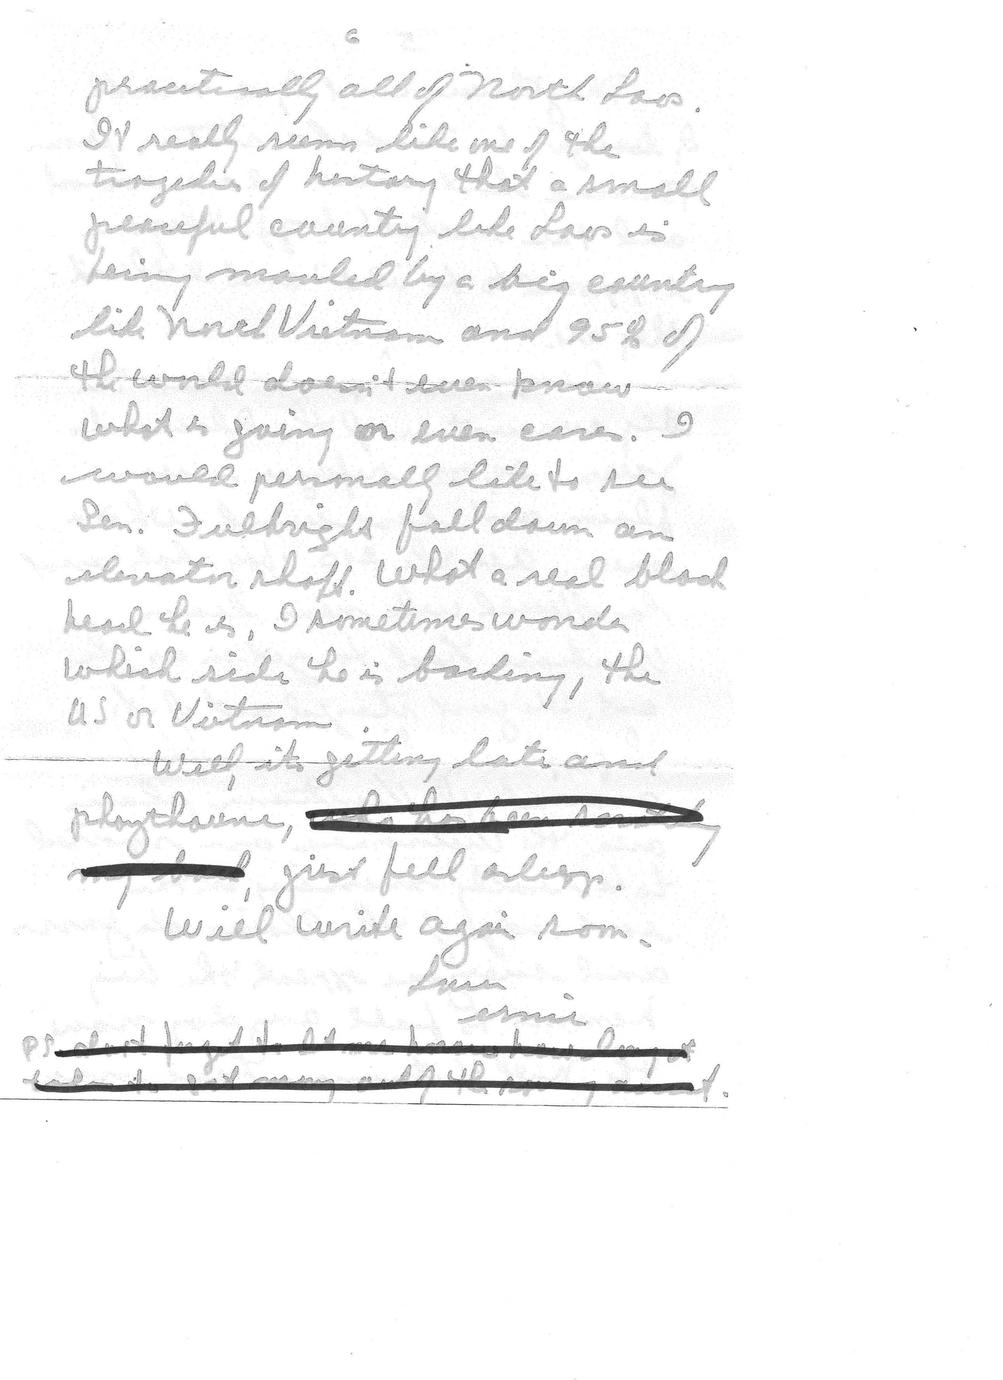 6
practically all of North Laos.
It really seems like one of the
tragedies of history that a small
peaceful country like Laos is
being mauled by a big country
like North Vietnam and 95% of
the world doesn't even know
what is going on even cares. I
would personally like to see
Sen. Fulbright fall down an
elevator shaft. What a real block
head he is, I sometimes wonder
which side he is backing, the
US or Vietnam.
Well, its getting late and
just fell asleep.
Will write again soon.
Love
ernie
PS